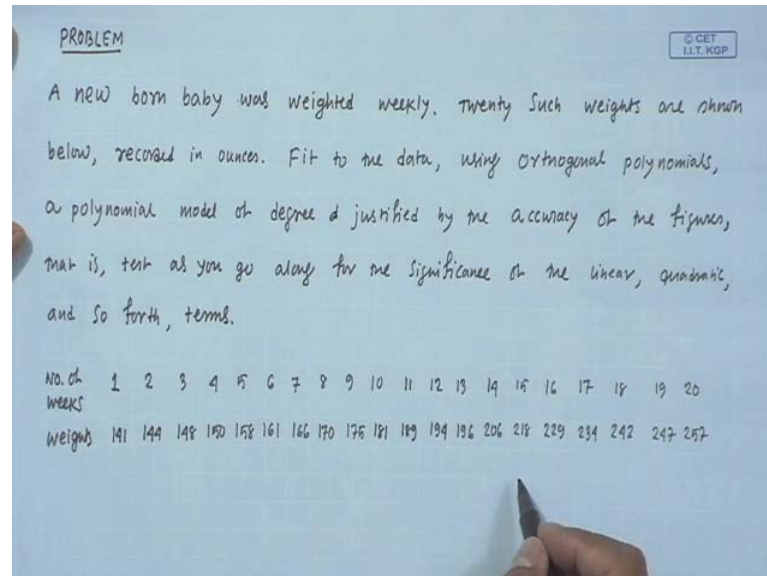 PROBLEM
© CET
I.I.T. KGP
A new born baby was weighted weekly. Twenty Such weights are shown
below, recorded in ounces. Fit to the data, using orthogonal polynomials,
a polynomial model of degree d justified by the accuracy of the figures,
that is, test as you go along for the significance of the linear, quadratic,
and so forth, terms.
No. of weeks 1 2 3 4 5 6 7 8 9 10 11 12 13 14 15 16 17 18 19 20
weights 141 144 148 150 158 161 166 170 175 181 189 194 196 206 218 229 234 242 247 257